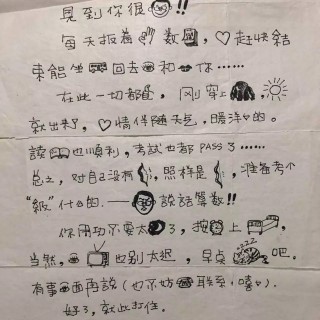 見到你很!!
每天扳着數,趕快結
束能回去和你……
在此一切都,剛穿上,
就出來了,情伴隨天氣,暖洋的。
讀也順利,考試也都PASS了……
总之,对自己没有,照样是,准备考个
“級”什的.——說話算數!!
你用功不要太了,把上,
当然,也别太迟,早点吧.
有事面再說(也不妨联系,嘻).
好了,就此打住.